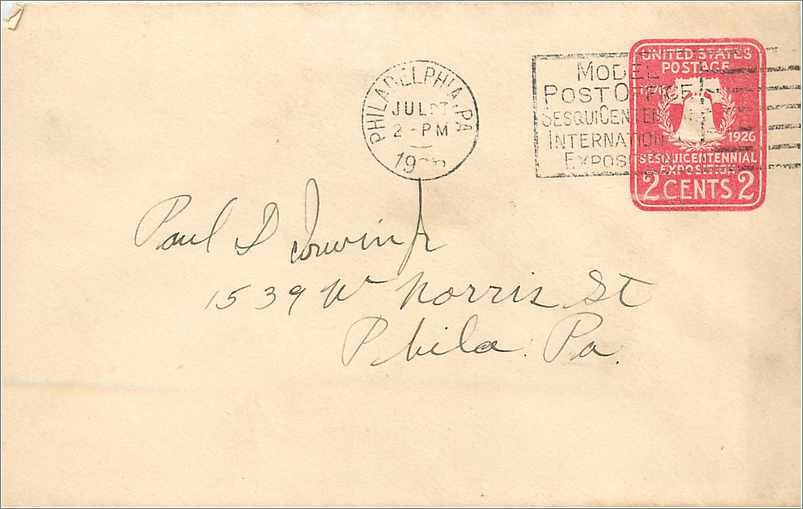 PHILADELPHIA, PA
JUL 27
2 - PM
MODEL
POST OFFICE
SESQUICENTEN
INTERNATION
EXPOS
UNITED STATES
POSTAGE
1926
SESQUICENTENNIAL
EXPOSITION
2 CENTS 2
Paul D Irwin Jr
1539 W Norris St
Phila. Pa.